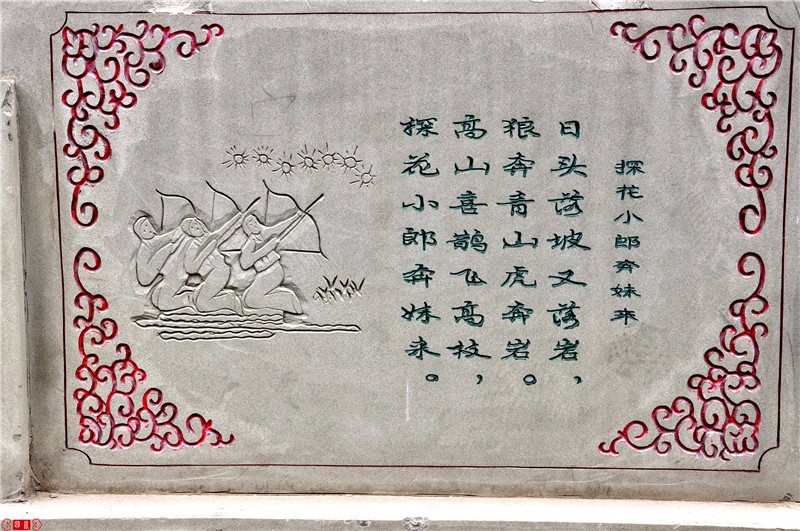 探花小郎奔妹来
日头落坡又落岩，
狼奔青山虎奔岩。
高山喜鹊飞高枝，
探花小郎奔妹来。